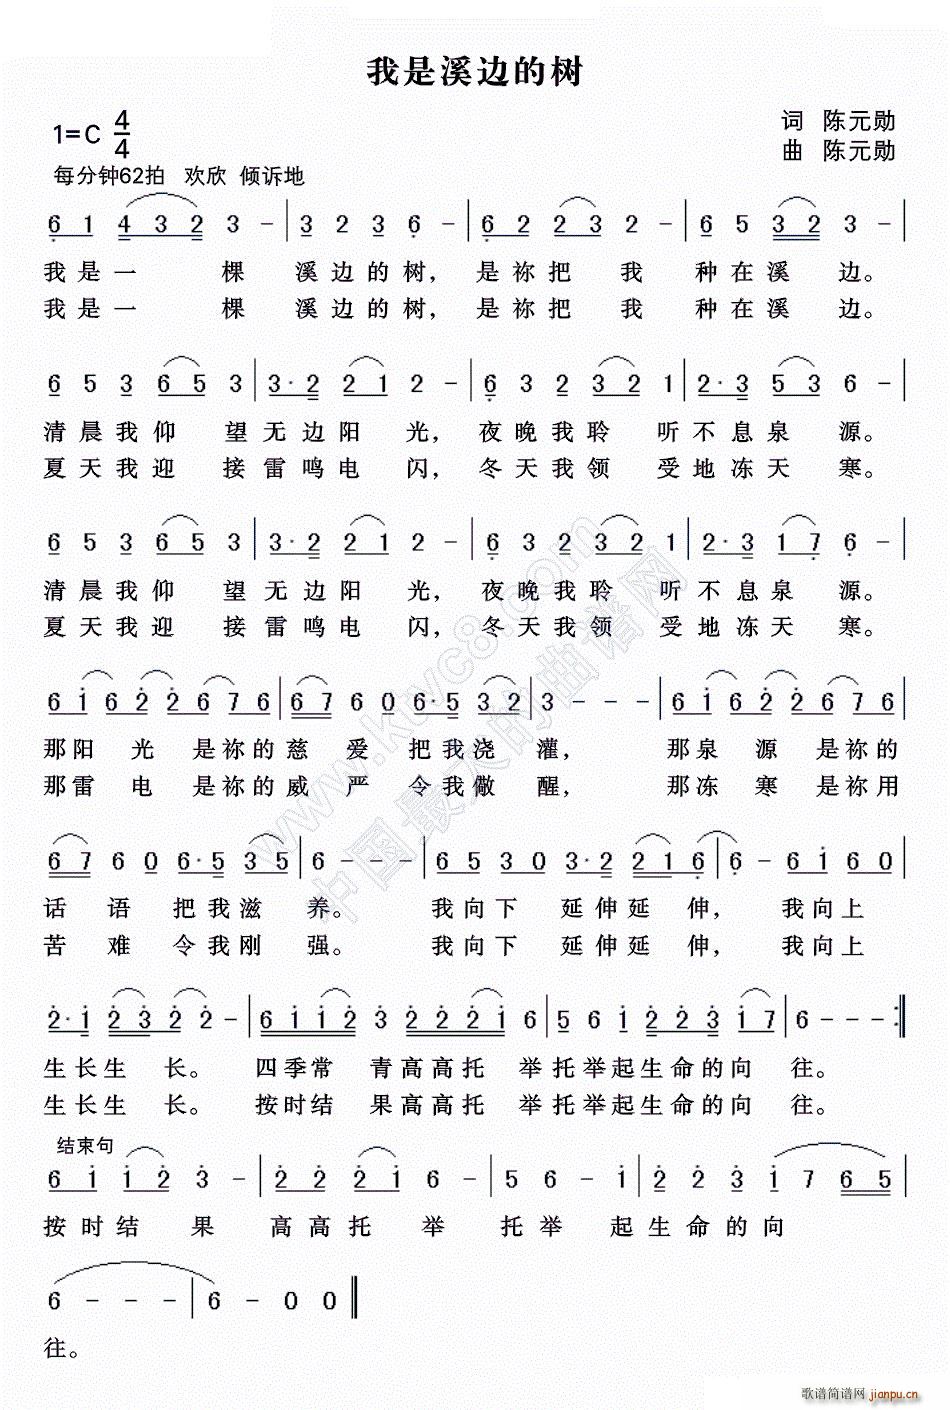 我是溪边的树
1=C 4/4
词 陈元勋
曲 陈元勋
每分钟62拍 欢欣 倾诉地
6 1 4 3 2 3 - | 3 2 3 6 - | 6 2 2 3 2 - | 6 5 3 2 3 - |
我是一 棵 溪边的树，是祢把 我 种在溪 边。
我是一 棵 溪边的树，是祢把 我 种在溪 边。
6 5 3 6 5 3 | 3·2 2 1 2 - | 6 3 2 3 2 1 | 2·3 5 3 6 - |
清晨我仰 望无边阳 光，夜晚我聆 听不息泉 源。
夏天我迎 接雷鸣电 闪，冬天我领 受地冻天 寒。
6 5 3 6 5 3 | 3·2 2 1 2 - | 6 3 2 3 2 1 | 2·3 1 7 6 - |
清晨我仰 望无边阳 光，夜晚我聆 听不息泉 源。
夏天我迎 接雷鸣电 闪，冬天我领 受地冻天 寒。
6 i 6 2 2 6 7 6 | 6 7 6 0 6·5 3 2 | 3 - - - | 6 i 6 2 2 6 7 6 |
那阳 光 是祢的慈 爱 把我浇 灌， 那泉 源 是祢的
那雷 电 是祢的威 严 令我儆 醒， 那冻 寒 是祢用
6 7 6 0 6·5 3 5 | 6 - - - | 6 5 3 0 3·2 2 1 6 | 6 - 6 i 6 0 |
话 语 把我滋 养。 我向下 延伸延 伸， 我向上
苦 难 令我刚 强。 我向下 延伸延 伸， 我向上
2·i 2 3 2 2 - | 6 i i 2 3 2 2 2 i 6 | 5 6 i 2 2 3 i 7 | 6 - - - :‖
生长生 长。 四季常 青高高托 举托举起生命的向 往。
生长生 长。 按时结 果高高托 举托举起生命的向 往。
结束句
6 i i 2 3 - | 2 2 2 i 6 - | 5 6 i - | 2 2 3 i 7 6 5 |
按时结 果 高高托 举 托举 起生命的向
6 - - - | 6 - 0 0 ‖
往。
www.ktvc8.com
中国最大的曲谱网
歌谱简谱网 jianpu.cn